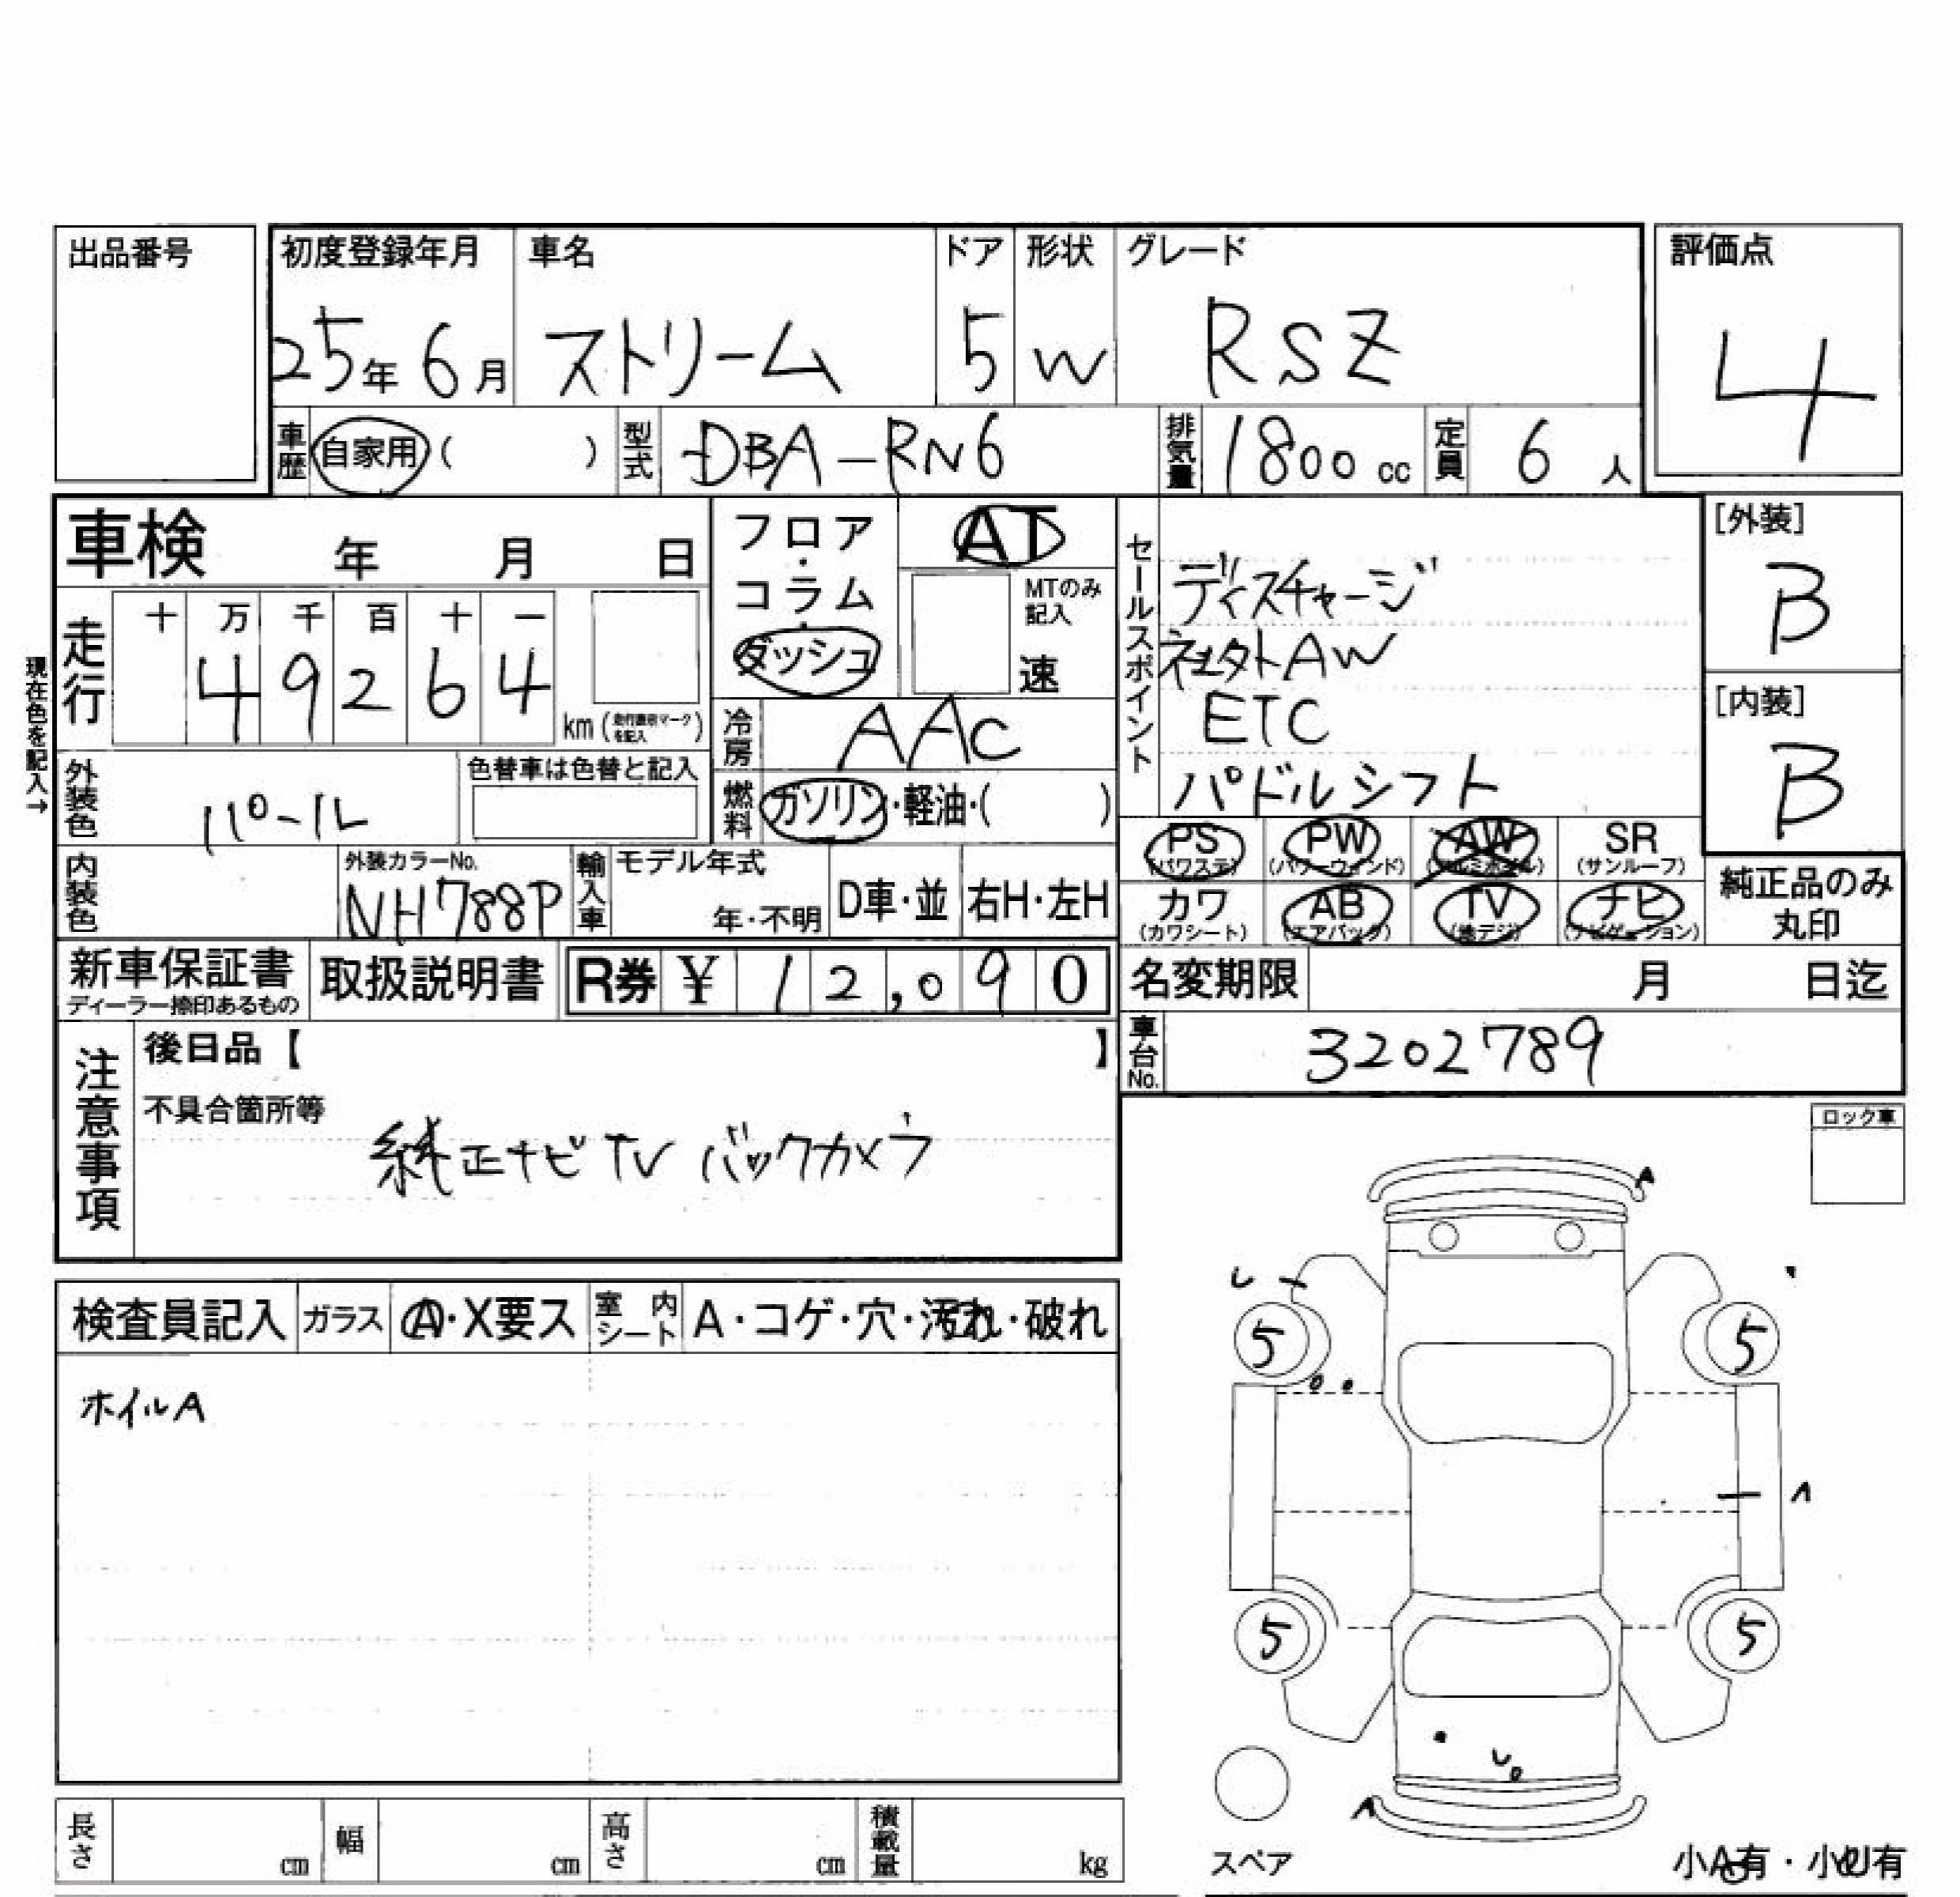 出品番号
初度登録年月 車名 ドア 形状 グレード 評価点
25年 6月 ストリーム 5 W RSZ 4
車歴 自家用 ( ) 型式 DBA-RN6 排気量 1800 cc 定員 6 人
車検 年 月 日
フロア・コラム・ダッシュ
AT
MTのみ記入
速
セールスポイント
ディスチャージ
AW
ETC
パドルシフト
[外装]
B
[内装]
B
現在色を記入→
走行 十 万 千 百 十 一
4 9 2 6 4
km (走行距離マークを記入)
冷房 AAC
燃料 ガソリン・軽油・( )
外装色 パール 色替車は色替と記入
内装色 外装カラーNo. NH788P 輸入車 モデル年式 年・不明 D車・並 右H・左H
PS (パワステ) PW (パワーウィンド) AW (アルミホイル) SR (サンルーフ)
カワ (カワシート) AB (エアバック) TV (地デジ) ナビ (ナビゲーション)
純正品のみ丸印
新車保証書 ディーラー捺印あるもの 取扱説明書 R券 ¥ 12,090
名変期限 月 日迄
車台No. 3202789
注意事項
後日品【 】
不具合箇所等
純正ナビTV バックカメラ
ロック車
検査員記入 ガラス A・X要ス 室内シート A・コゲ・穴・汚れ・破れ
ホイルA
A
5 5
5 5
A
スペア
長さ cm 幅 cm 高さ cm 積載量 kg
小A有・小U有